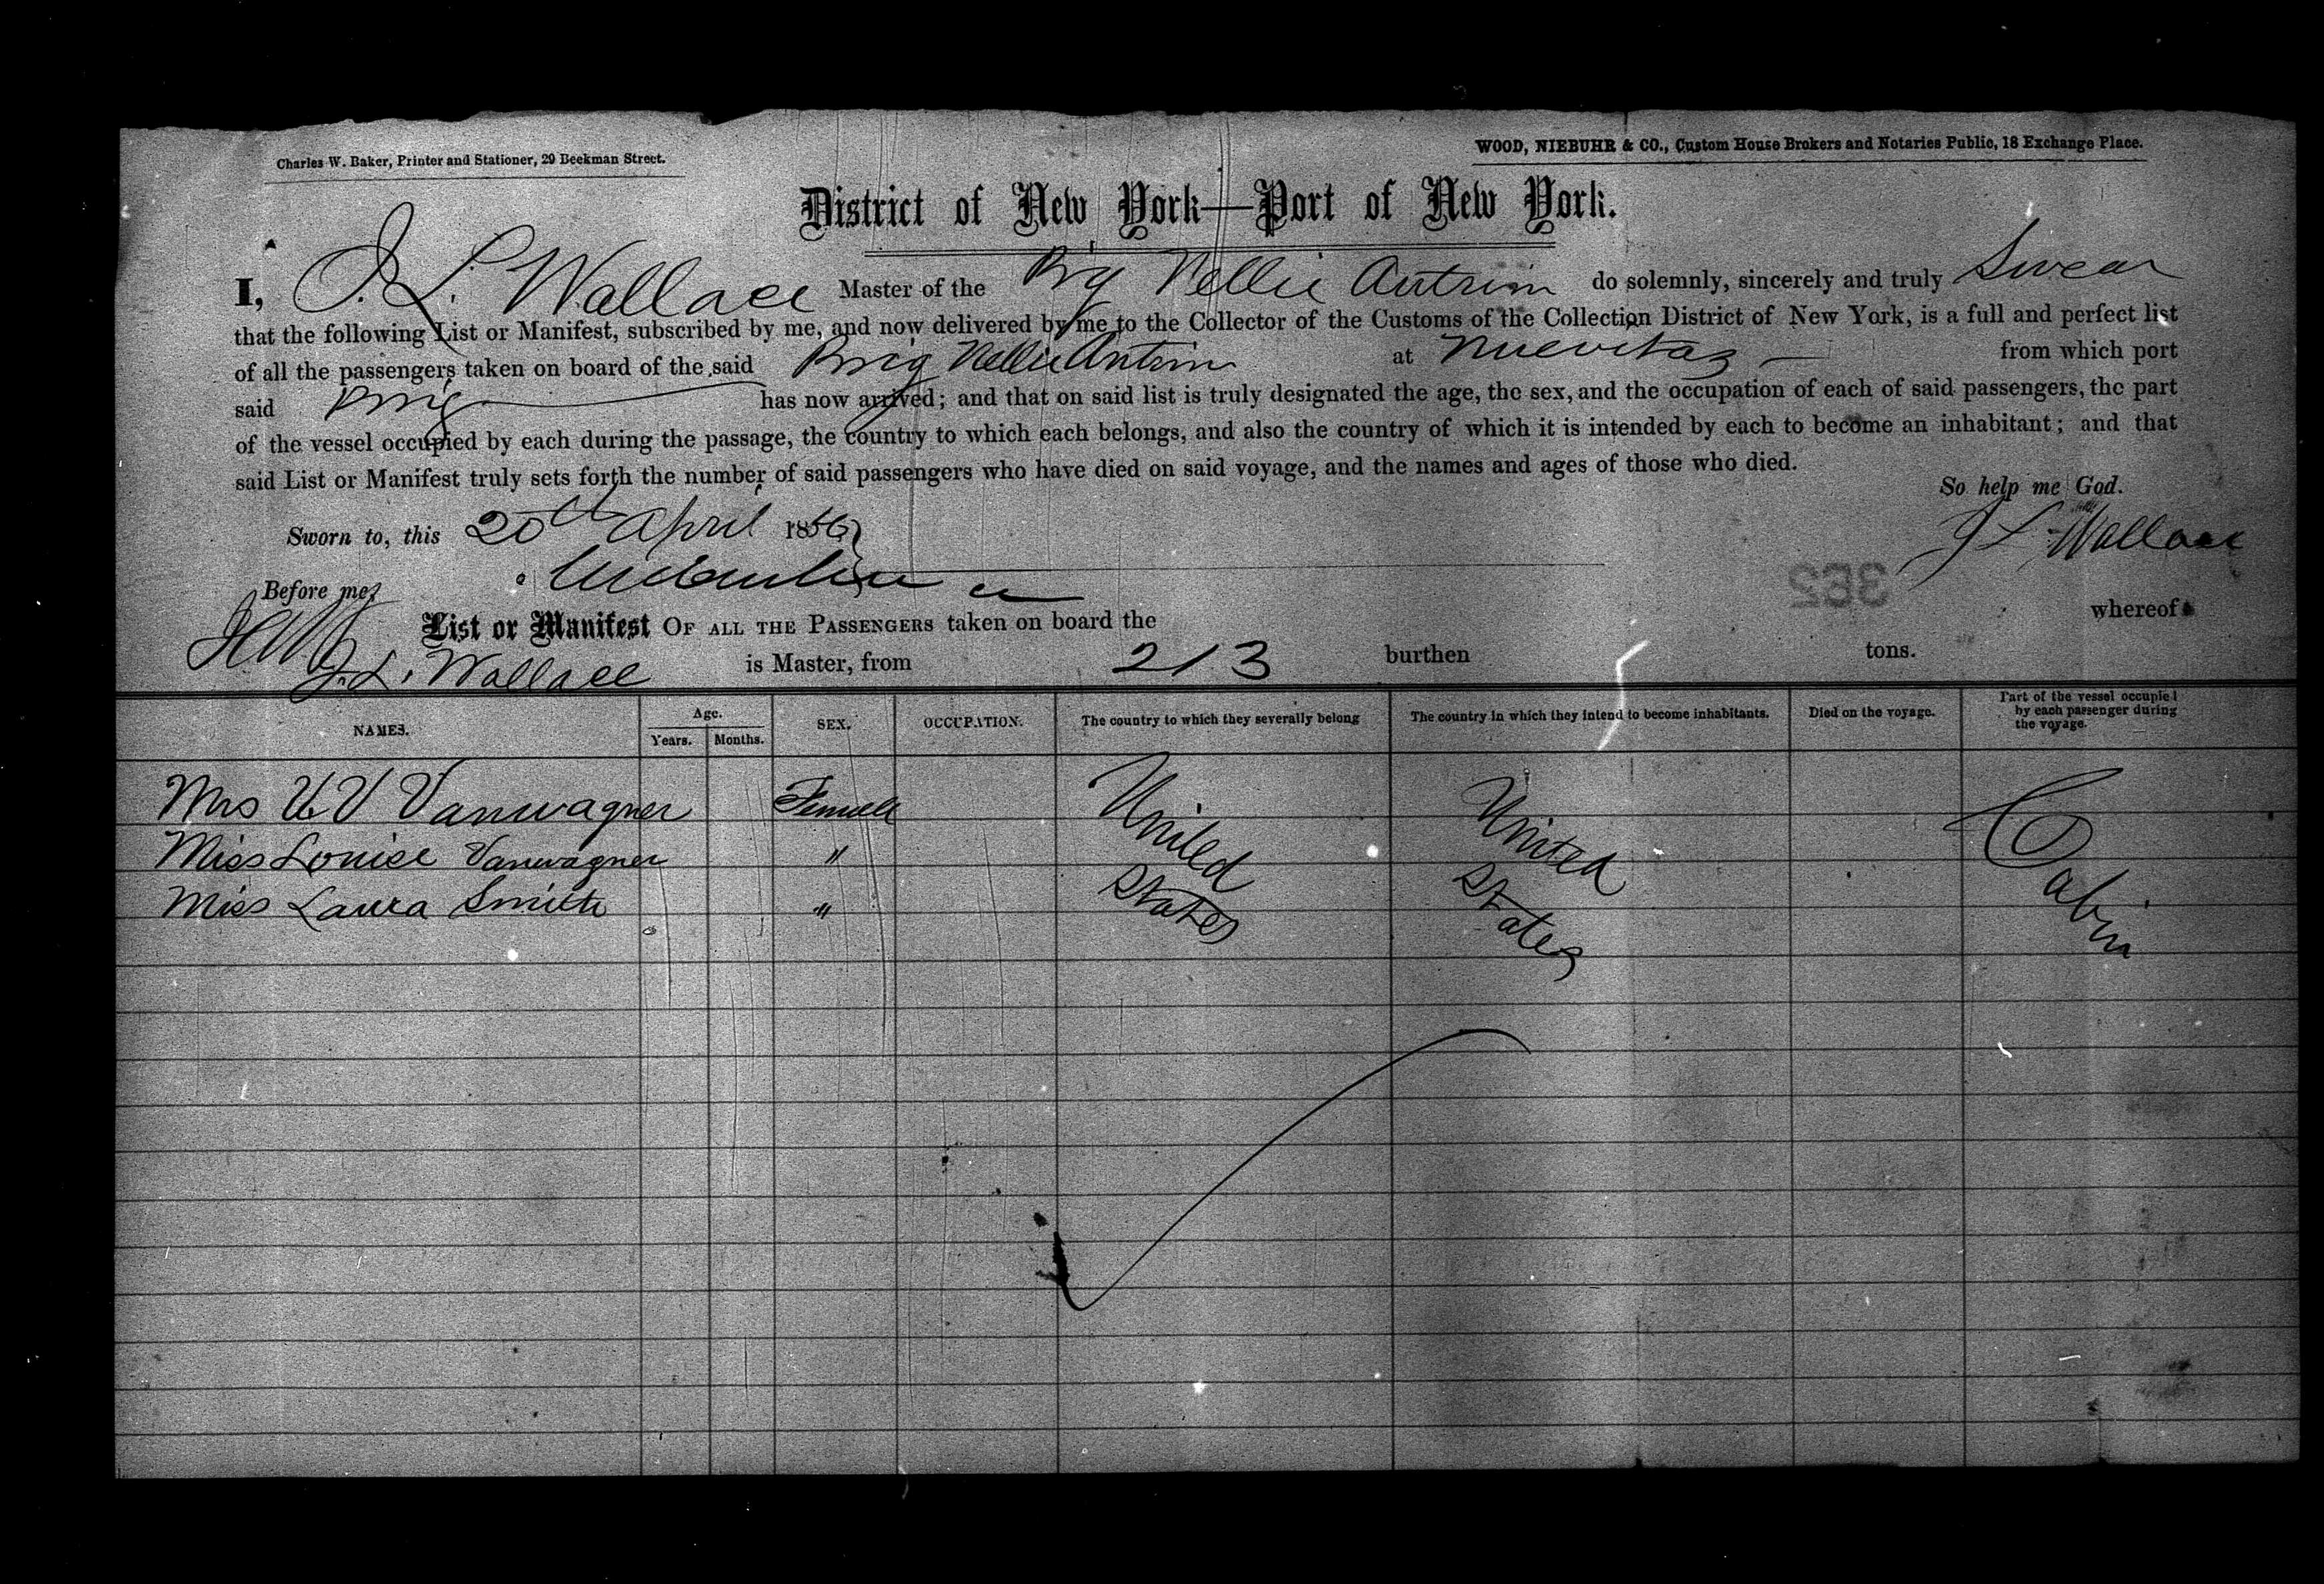 Charles W. Baker, Printer and Stationer, 29 Beekman Street.
WOOD, NIEBUHR & CO., Custom House Brokers and Notaries Public, 18 Exchange Place.
District of New York—Port of New York.
I, J. L. Wallace Master of the Brg Nellie Antrim do solemnly, sincerely and truly Swear
that the following List or Manifest, subscribed by me, and now delivered by me to the Collector of the Customs of the Collection District of New York, is a full and perfect list
of all the passengers taken on board of the said Brig Nellie Antrim at Nuevitas from which port
said Brig has now arrived; and that on said list is truly designated the age, the sex, and the occupation of each of said passengers, the part
of the vessel occupied by each during the passage, the country to which each belongs, and also the country of which it is intended by each to become an inhabitant; and that
said List or Manifest truly sets forth the number of said passengers who have died on said voyage, and the names and ages of those who died.
So help me God.
Sworn to, this 20th April 186
J L Wallace
Before me,
362
List or Manifest OF ALL THE PASSENGERS taken on board the whereof
J. L. Wallace is Master, from 213 burthen tons.
NAMES. Age. Years. Months. SEX. OCCUPATION. The country to which they severally belong The country in which they intend to become inhabitants. Died on the voyage. Part of the vessel occupied by each passenger during the voyage.
Mrs V Vanwagner Female United States United States Cabin
Miss Louise Vanwagner "
Miss Laura Smith "